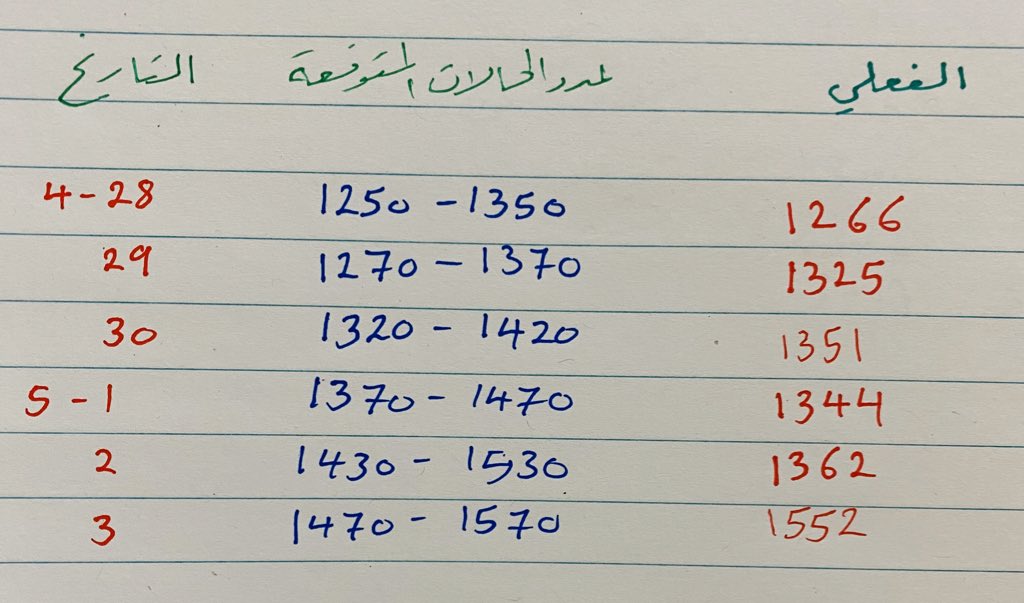 التاريخ عدد الحالات المتوقعة الفعلي
4-28 1250 - 1350 1266
29 1270 - 1370 1325
30 1320 - 1420 1351
5-1 1370 - 1470 1344
2 1430 - 1530 1362
3 1470 - 1570 1552